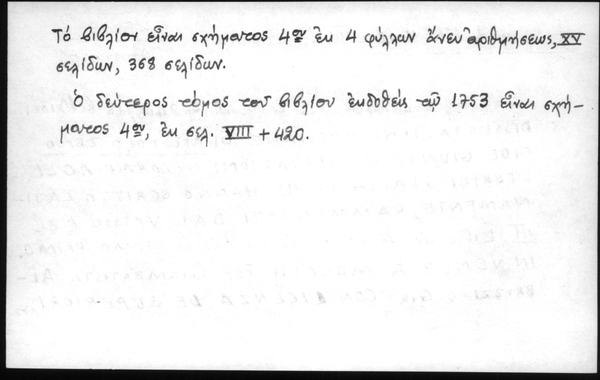 Τό βιβλίον εἶναι σχήματος 4ου ἐκ 4 φύλλων ἄνευ ἀριθμήσεως, XV
σελίδων, 368 σελίδων.
Ὁ δεύτερος τόμος τοῦ βιβλίου ἐκδοθείς τῷ 1753 εἶναι σχή-
ματος 4ου, ἐκ σελ. VIII + 420.